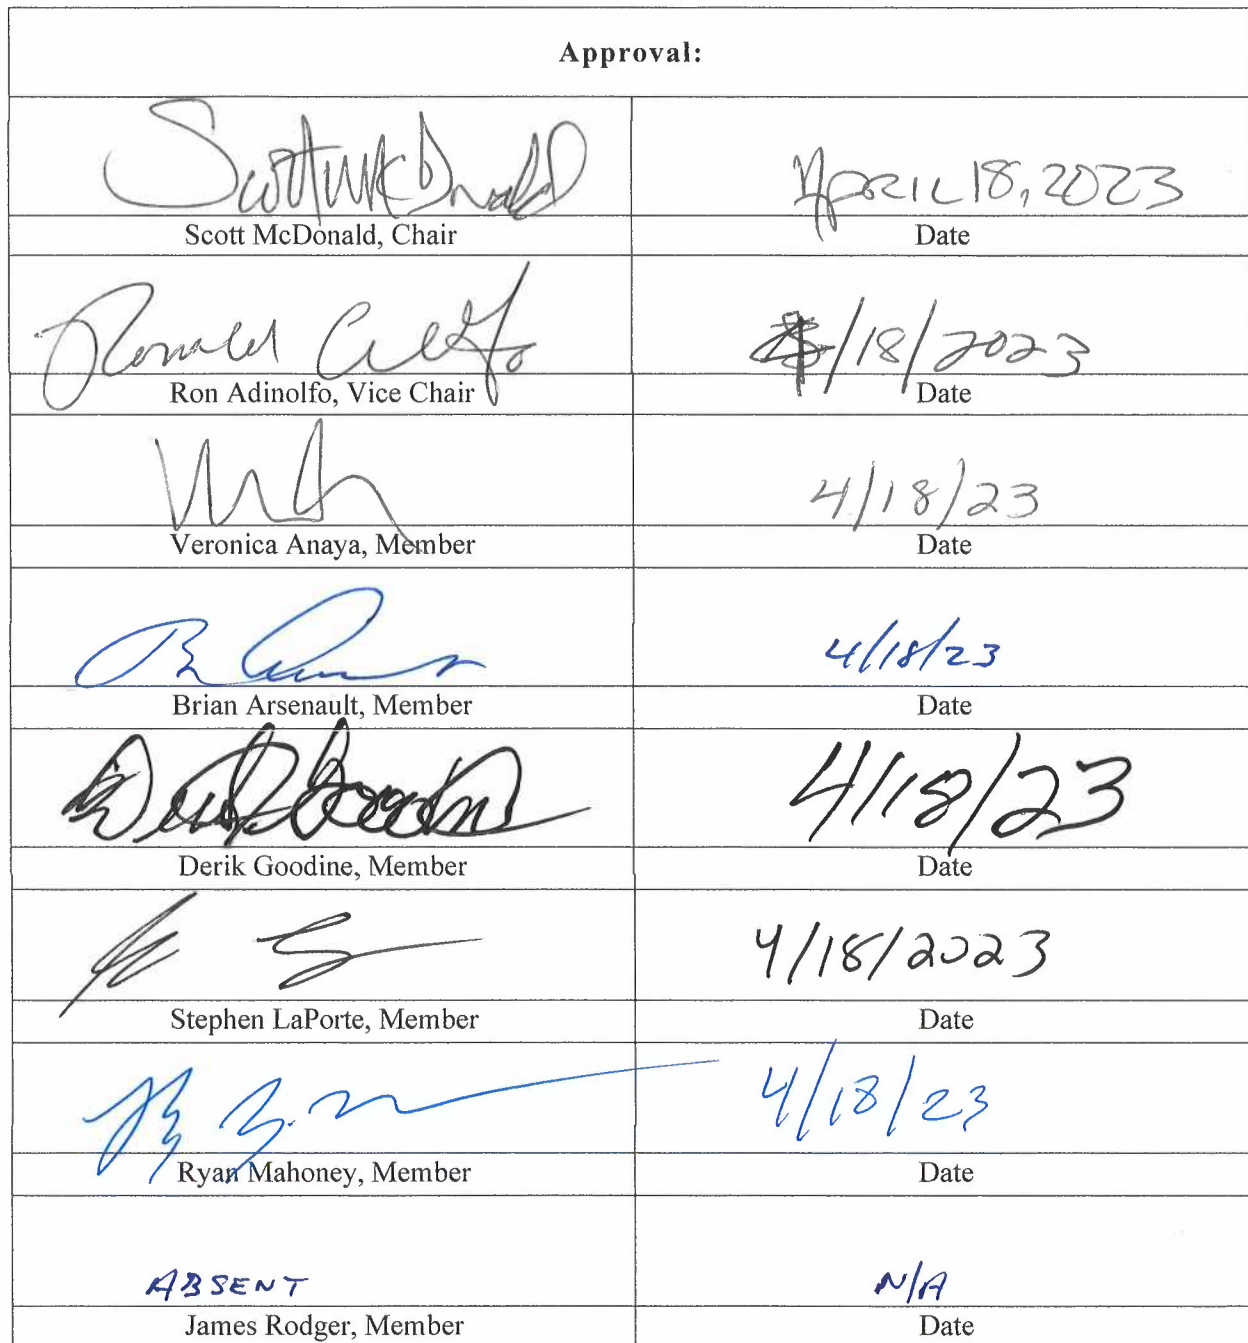 Approval:
Scott McDonald April 18, 2023
Scott McDonald, Chair Date
Ronald 4/18/2023
Ron Adinolfo, Vice Chair Date
4/18/23
Veronica Anaya, Member Date
4/18/23
Brian Arsenault, Member Date
4/18/23
Derik Goodine, Member Date
4/18/2023
Stephen LaPorte, Member Date
4/18/23
Ryan Mahoney, Member Date
ABSENT N/A
James Rodger, Member Date